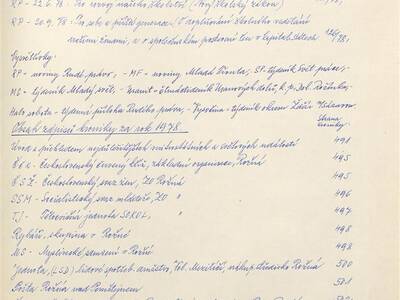 RP - 22.6.78 - Pro rozvoj našeho školství - (Nový školský zákon)
RP - 20.9.78 - Pro sebe a příští generace / O zvyšování školního vzdělání
našimi ženami, a o společenském postavení žen v kapitalistech
126/78.
Vysvětlivky:
RP - noviny Rudé právo, - MF - noviny Mladá Fronta, SP - týdeník Svět práce,
MS - týdeník Mladý svět, - Granit - čtrnáctideník Uranových dolů, k.p. Dol. Rožínka,
Haló sobota - týdenní příloha Rudého práva, Vysočina - týdeník okresu Žďár n/Sázavou
Obsah zápisů kroniky za rok 1978.
Strana kroniky:
Úvod s přehledem nejdůležitějších mimostátních a světových událostí 491
ČČK - Československý červený kříž, základní organizace, Rožná 495
ČSŽ - Československý svaz žen, ZO Rožná 495
SSM - Socialistický svaz mládeže, ZO " 496
TJ - Tělocvičná jednota SOKOL, " 497
Rybáři, skupina v Rožné 498
MS - Myslivecké sdružení v Rožné 498
Jednota, (LSD) lidové spotřeb. družstvo, Vel. Meziříčí, nákup. středisko Rožná 500
Pošta Rožná nad Pernštejnem 501